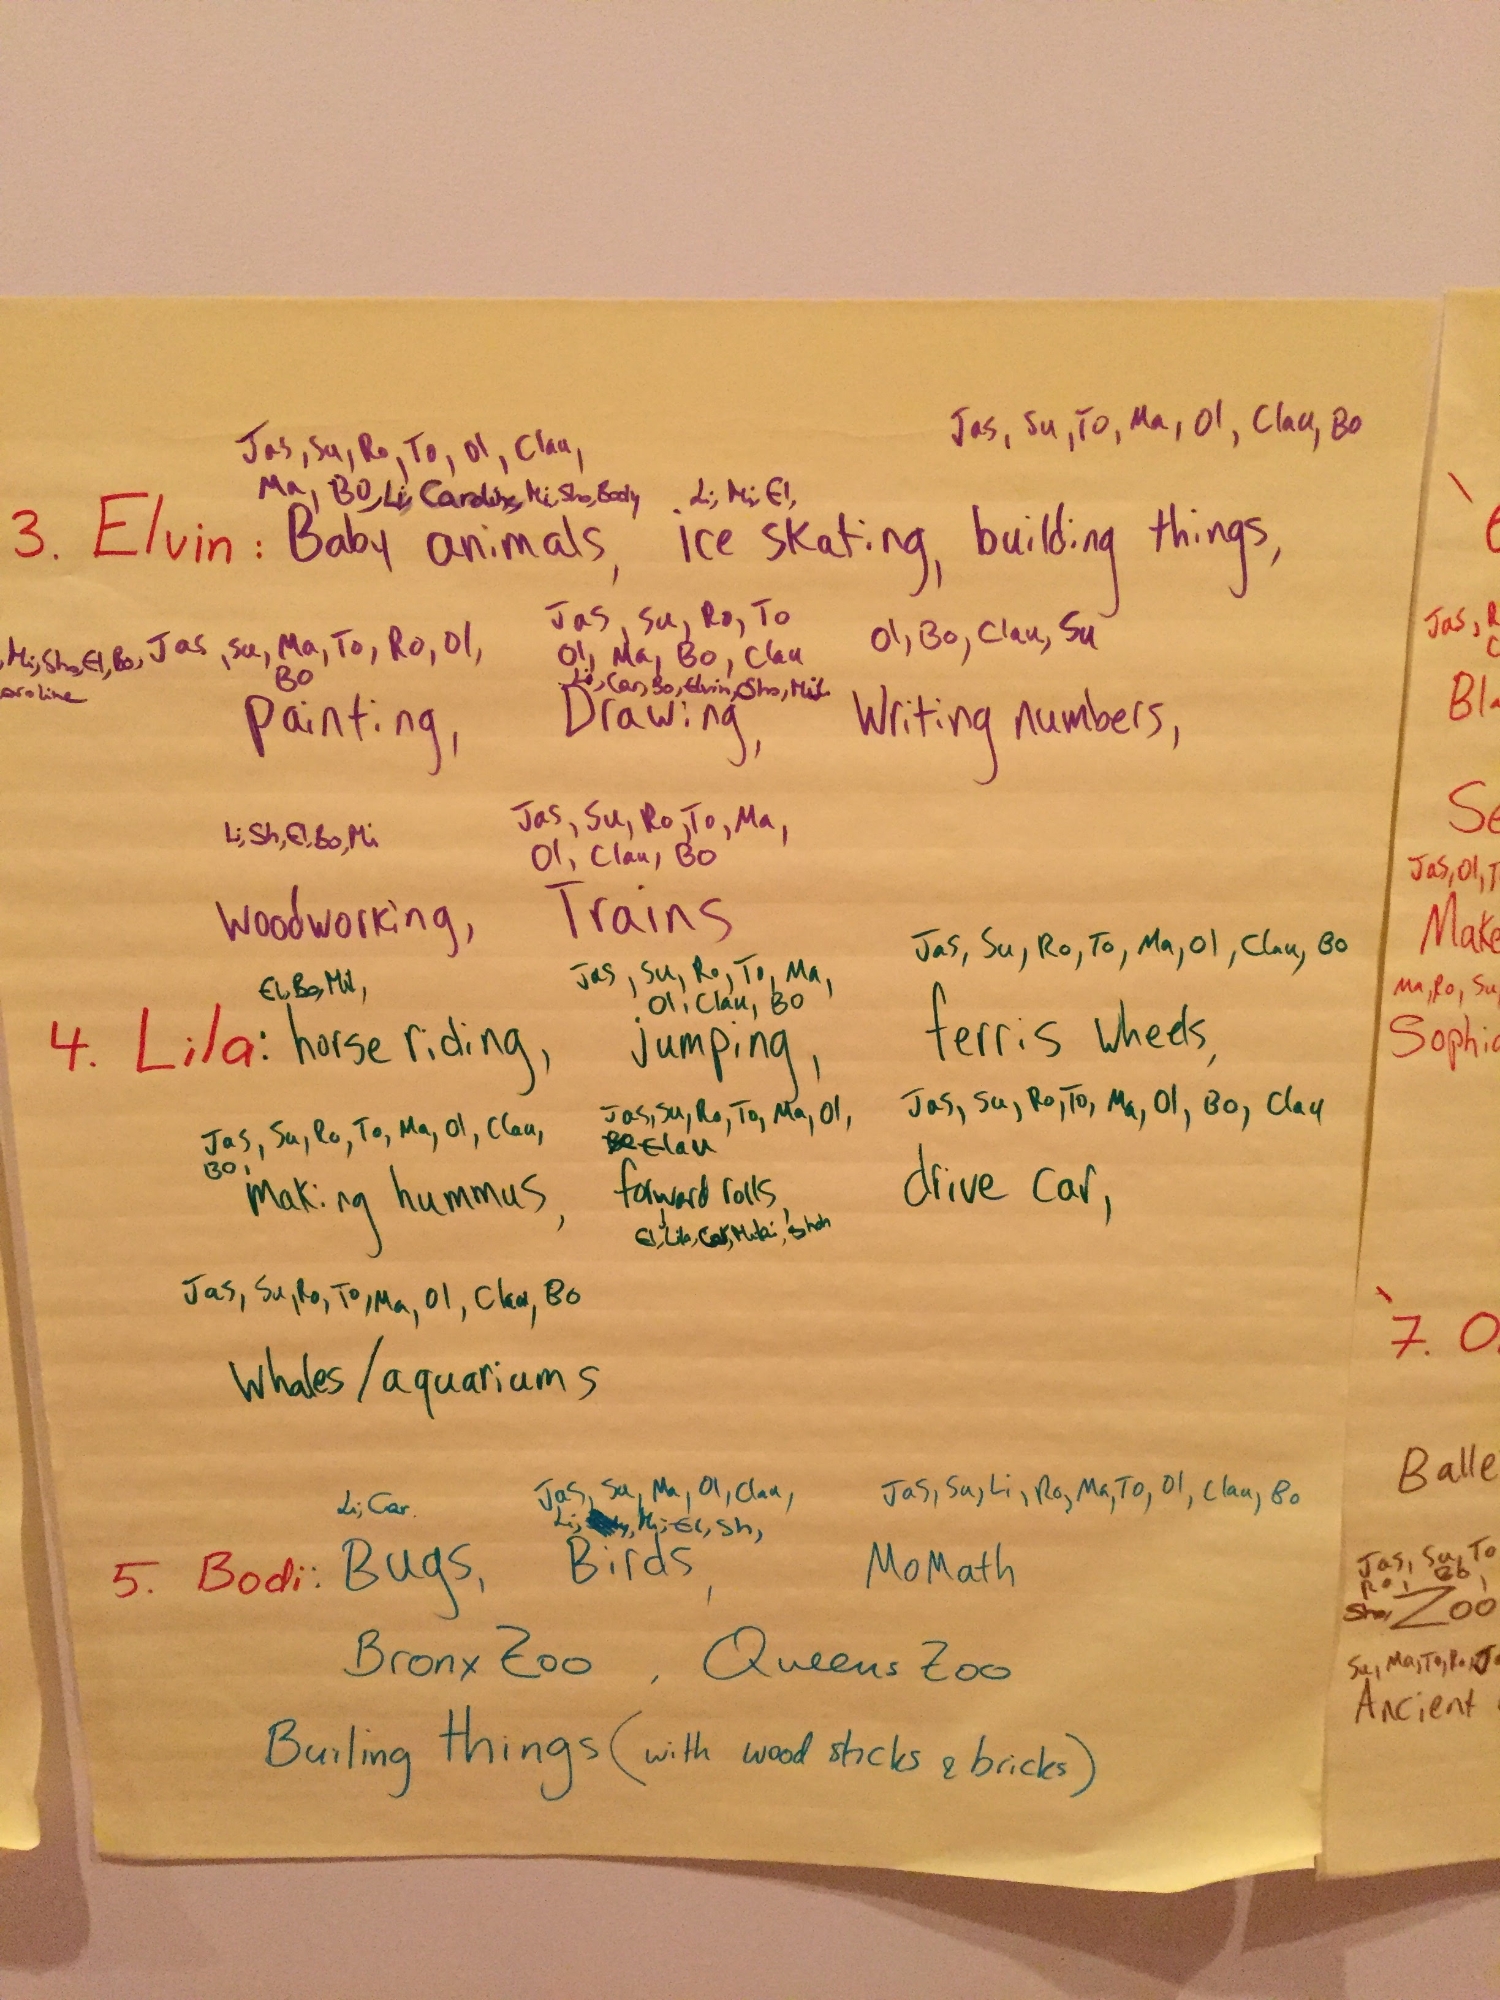 Jas, Su, Ro, To, Ol, Clau,
Jas, Su, To, Ma, Ol, Clau, Bo
Ma, BO, Li, Caroline, Mi, Sho, Body
Li, Mi, El,
3. Elvin: Baby animals, ice skating, building things,
Mi, Sho, El, Bo, Jas, Su, Ma, To, Ro, Ol,
Bo
aroline
Jas, Su, Ro, To
Ol, Ma, Bo, Clau
Li, Car, Bo, Elvin, Sho, Mil
Ol, Bo, Clau, Su
Painting, Drawing, Writing numbers,
Li, Sh, El, Bo, Mi
Jas, Su, Ro, To, Ma,
Ol, Clau, Bo
Woodworking, Trains
El, Bo, Mil,
Jas, Su, Ro, To, Ma,
Ol, Clau, Bo
Jas, Su, Ro, To, Ma, Ol, Clau, Bo
4. Lila: horse riding, jumping, ferris wheels,
Jas, Su, Ro, To, Ma, Ol, Clau,
Bo,
Jas, Su, Ro, To, Ma, Ol,
Clau
Jas, Su, Ro, To, Ma, Ol, Bo, Clau
making hummus, forward rolls, drive car,
El, Lila, Car,
Jas, Su, Ro, To, Ma, Ol, Clau, Bo
Whales/aquariums
Li, Car.
Jas, Su, Ma, Ol, Clau,
Li, Mi, El, Sh,
Jas, Su, Li, Ro, Ma, To, Ol, Clau, Bo
5. Bodi: Bugs, Birds, MoMath
Bronx Zoo, Queens Zoo
Builing things (with wood sticks & bricks)
Jas, R
Bla
Se
Jas, Ol, T
Make
Ma, Ro, Su,
Sophi
7. O
Balle
Jas, Su, To
Ro,
Sho, Zoo
Su, Ma, To, Ro, Ja
Ancient